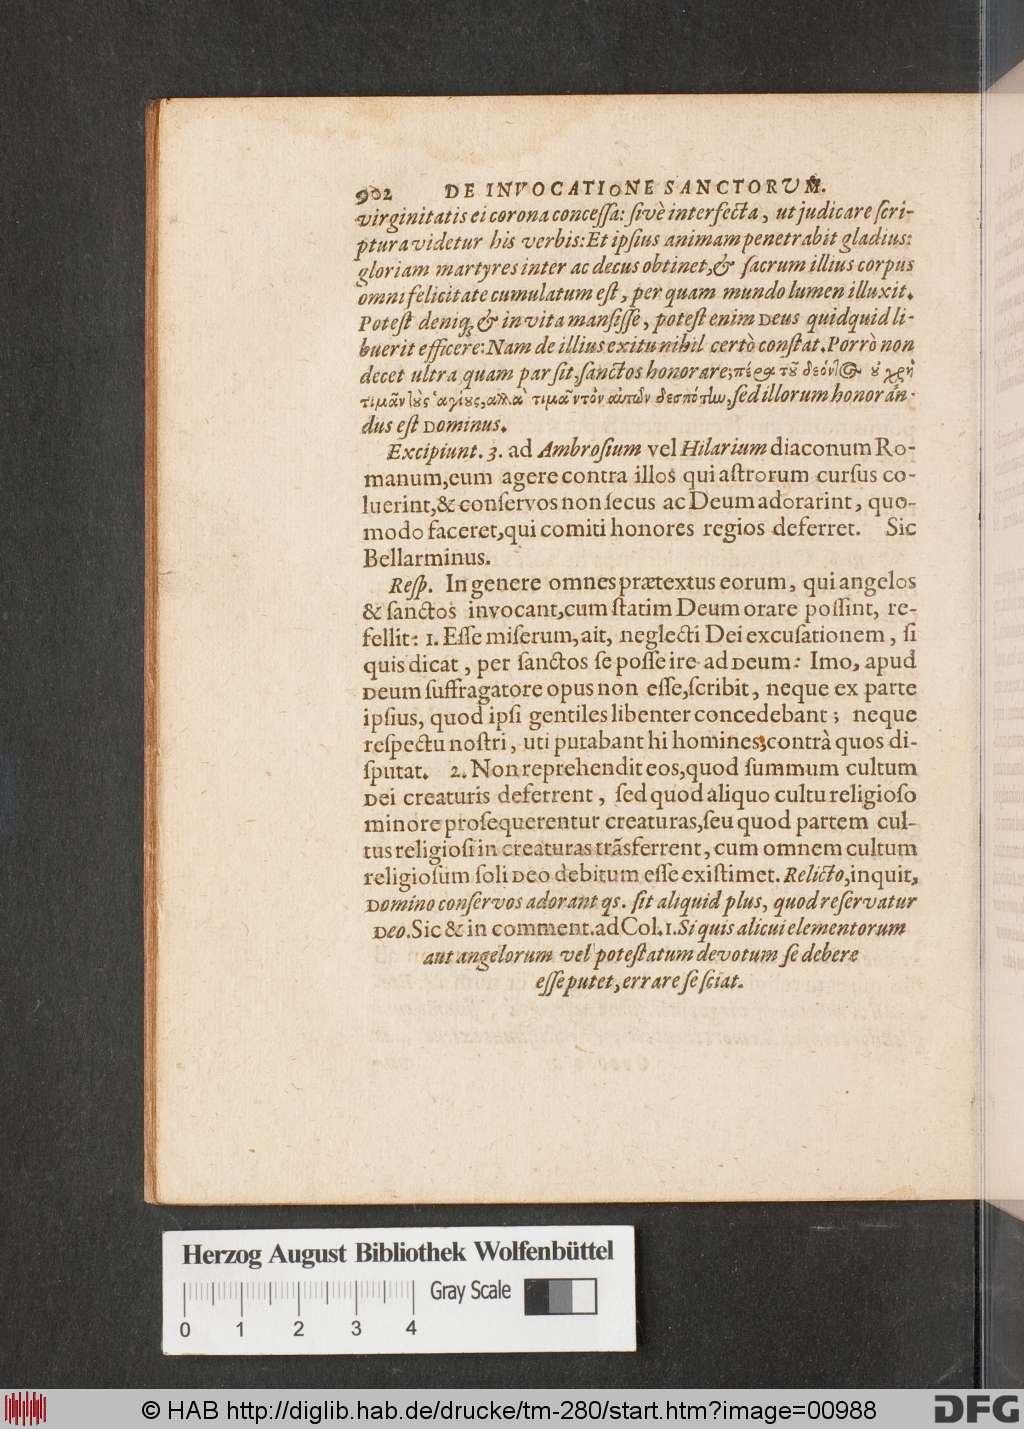 902 DE INVOCATIONE SANCTORUM.
virginitatis ei corona concessa: sivè interfecta, ut judicare scri-
ptura videtur his verbis: Et ipsius animam penetrabit gladius:
gloriam martyres inter ac decus obtinet, & sacrum illius corpus
omni felicitate cumulatum est, per quam mundo lumen illuxit.
Potest deniq; & in vita mansisse, potest enim Deus quidquid li-
buerit efficere: Nam de illius exitu nihil certò constat. Porrò non
decet ultra quam par sit, sanctos honorare; πέρα τοῦ δέοντος οὐ χρὴ
τιμᾶν τοὺς ἁγίους, ἀλλὰ τιμᾶν τὸν αὐτῶν δεσπότην, sed illorum honorãn-
dus est Dominus.
Excipiunt. 3. ad Ambrosium vel Hilarium diaconum Ro-
manum, eum agere contra illos qui astrorum cursus co-
luerint, & conservos non secus ac Deum adorarint, quo-
modo faceret, qui comiti honores regios deferret. Sic
Bellarminus.
Resp. In genere omnes prætextus eorum, qui angelos
& sanctos invocant, cum statim Deum orare possint, re-
fellit: 1. Esse miserum, ait, neglecti Dei excusationem, si
quis dicat, per sanctos se posse ire ad Deum: Imo, apud
Deum suffragatore opus non esse, scribit, neque ex parte
ipsius, quod ipsi gentiles libenter concedebant; neque
respectu nostri, uti putabant hi homines; contrà quos di-
sputat. 2. Non reprehendit eos, quod summum cultum
Dei creaturis deferrent, sed quod aliquo cultu religioso
minore prosequerentur creaturas, seu quod partem cul-
tus religiosi in creaturas trãsferrent, cum omnem cultum
religiosum soli Deo debitum esse existimet. Relicto, inquit,
Domino conservos adorant qs. sit aliquid plus, quod reservatur
Deo. Sic & in comment. ad Col. 1. Si quis alicui elementorum
aut angelorum vel potestatum devotum se debere
esse putet, errare se sciat.
Herzog August Bibliothek Wolfenbüttel
Gray Scale
0 1 2 3 4
© HAB http://diglib.hab.de/drucke/tm-280/start.htm?image=00988
DFG